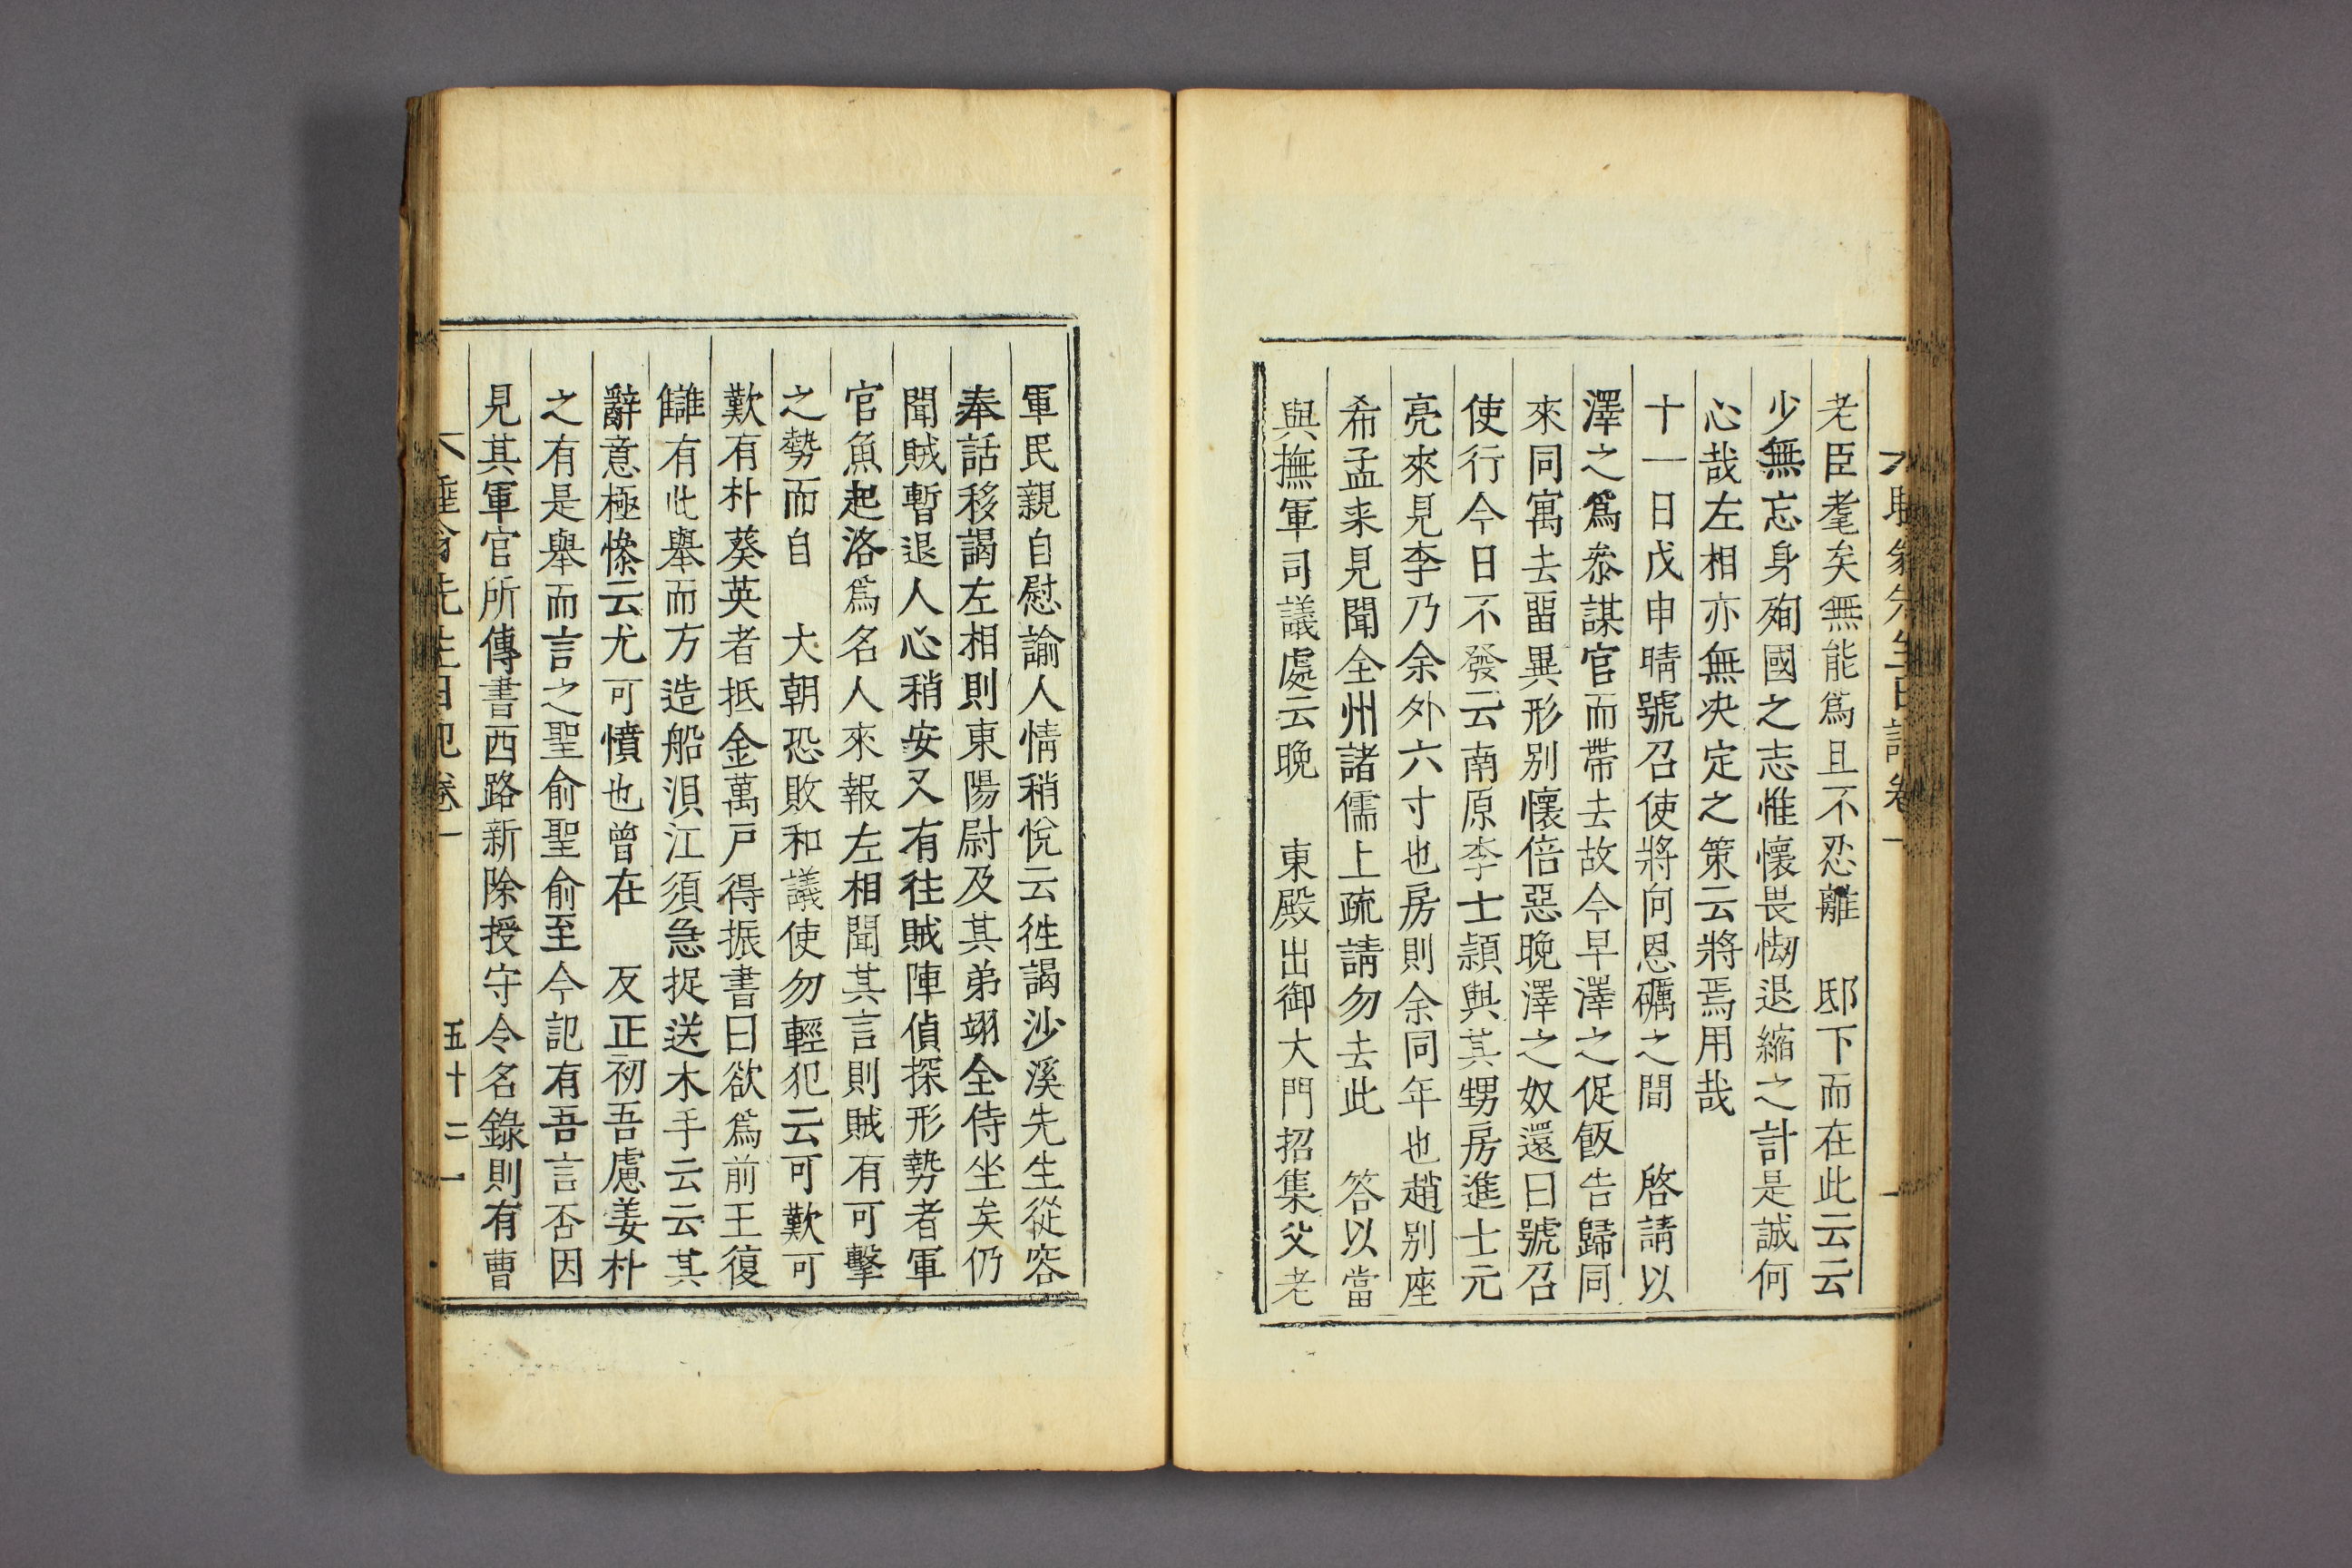 老臣耄矣無能爲且不忍離　邸下而在此云云
少無忘身殉國之志惟懷畏㥘退縮之計是誠何
心哉左相亦無决定之策云將焉用哉
十一日戊申晴號召使將向恩礪之間　啓請以
澤之爲叅謀官而帶去故今早澤之促飯告歸同
來同寓去畱異形别懷倍惡晩澤之奴還曰號召
使行今日不發云南原李士穎與其甥房進士元
亮來見李乃余外六寸也房則余同年也趙别座
希孟来見聞全州諸儒上疏請勿去此　答以當
與撫軍司議處云晩　東殿出御大門招集父老
軍民親自慰諭人情稍悅云徃謁沙溪先生從容
奉話移謁左相則東陽尉及其弟翊全侍坐矣仍
聞賊暫退人心稍安又有往賊陣偵探形勢者軍
官魚起洛爲名人來報左相聞其言則賊有可擊
之勢而自　大朝恐敗和議使勿輕犯云可歎可
歎有朴葵英者抵金萬戶得振書曰欲爲前王復
讎有此舉而方造船浿江須急捉送木手云云其
辭意極慘云尤可憤也曾在　反正初吾慮姜朴
之有是舉而言之聖俞聖俞至今記有吾言否因
見其軍官所傳書西路新除授守令名錄則有曹
先生日記卷一　五十二